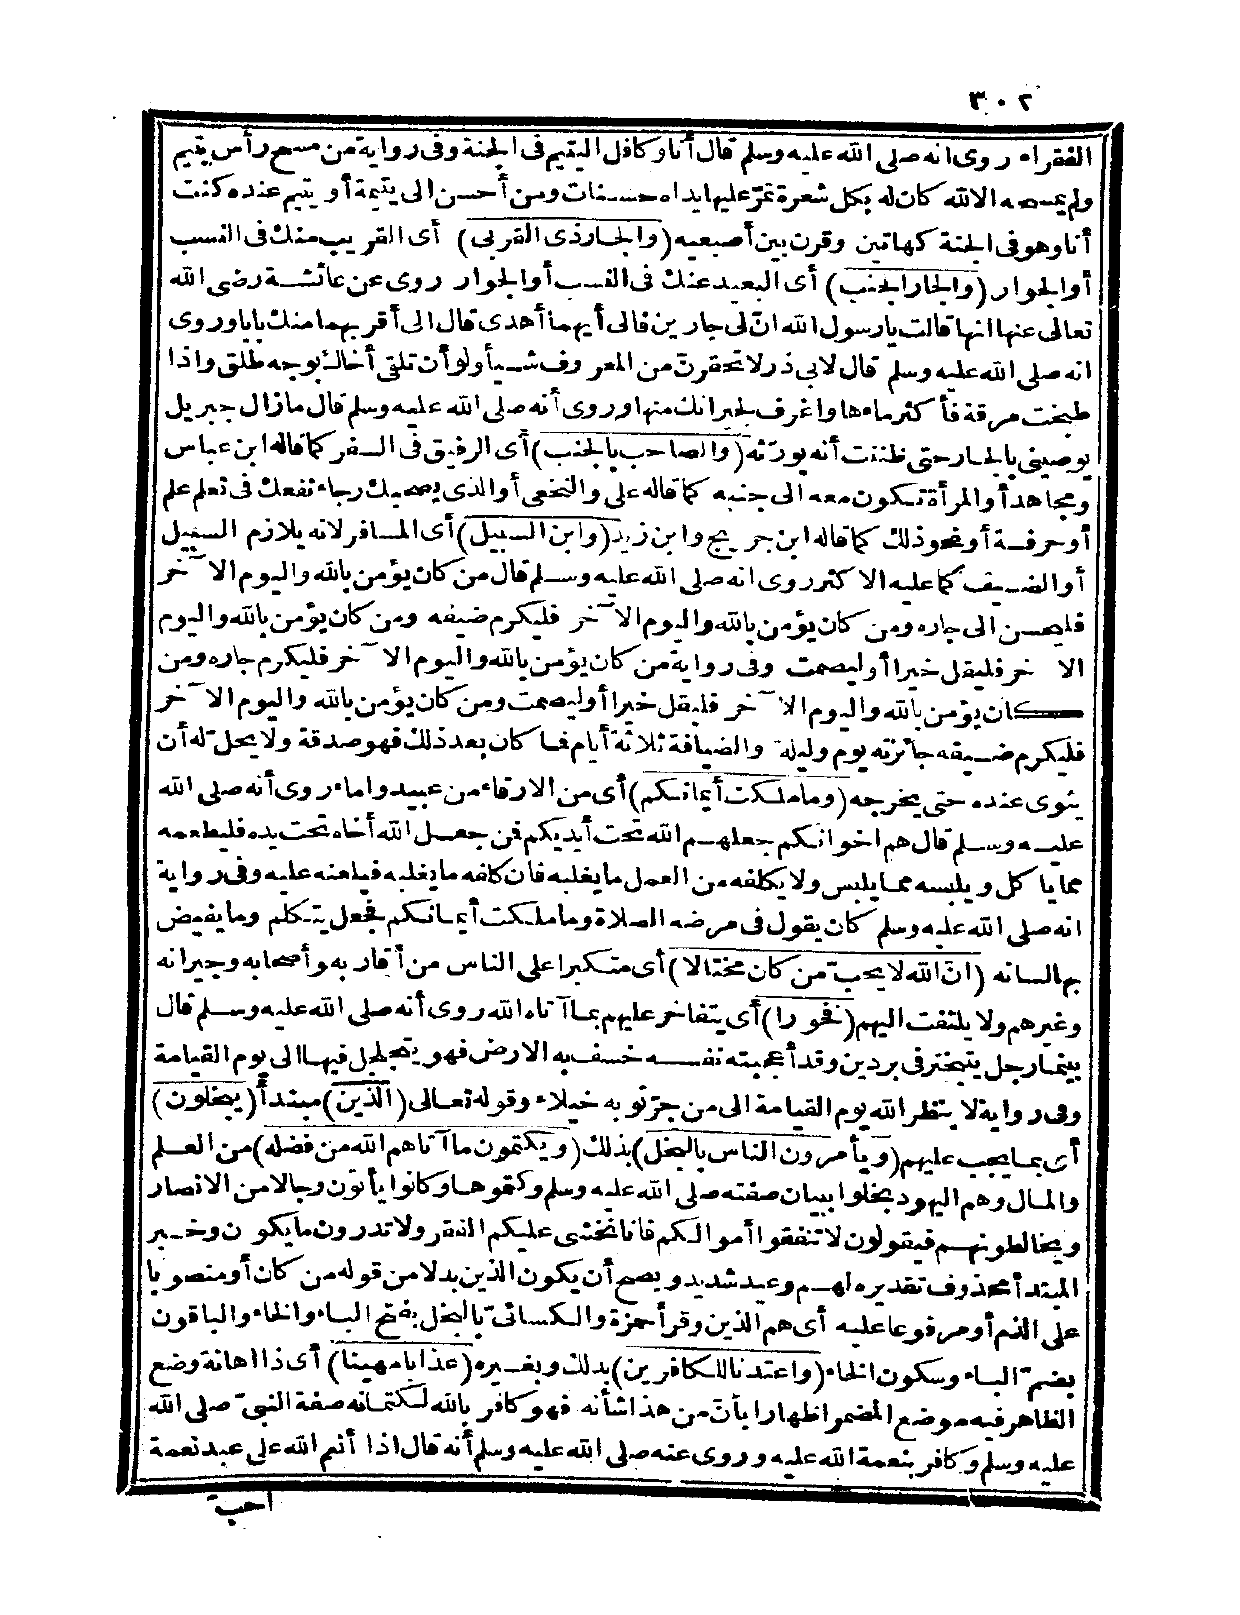 ٣٠٢
الفقراء روى انه صلى الله عليه وسلم قال أنا وكافل اليتيم فى الجنة وفى رواية من مسح رأس يتيم
ولم يمسحه الا لله كان له بكل شعرة تمرّ عليها يداه حسنات ومن أحسن الى يتيمة أو يتيم عنده كنت
أنا وهو فى الجنة كهاتين وقرن بين أصبعيه (والجار ذى القربى) أى القريب منك فى النسب
أو الجوار (والجار الجنب) أى البعيد عنك فى النسب أو الجوار روى عن عائشة رضى الله
تعالى عنها انها قالت يا رسول الله انّ لى جارين فالى أيهما أهدى قال الى أقربهما منك بابا وروى
انه صلى الله عليه وسلم قال لابى ذر لا تحقرنّ من المعروف شيأ ولو أن تلقى أخاك بوجه طلق واذا
طبخت مرقة فأكثر ماءها واغرف لجيرانك منها وروى أنه صلى الله عليه وسلم قال ما زال جبريل
يوصينى بالجار حتى ظننت أنه يورّثه (والصاحب بالجنب) أى الرفيق فى السفر كما قاله ابن عباس
ومجاهد أو المرأة تكون معه الى جنبه كما قاله على والنخعى أو الذى يصحبك رجاء نفعك فى تعلم علم
أو حرفة أو نحو ذلك كما قاله ابن جريج وابن زيد (وابن السبيل) أى المسافر لانه يلازم السبيل
أو الضيف كما عليه الاكثر روى انه صلى الله عليه وسلم قال من كان يؤمن بالله واليوم الآخر
فليحسن الى جاره ومن كان يؤمن بالله واليوم الآخر فليكرم ضيفه ومن كان يؤمن بالله واليوم
الاخر فليقل خيرا أو ليصمت وفى رواية من كان يؤمن بالله واليوم الآخر فليكرم جاره ومن
كان يؤمن بالله واليوم الآخر فليقل خيرا أو ليصمت ومن كان يؤمن بالله واليوم الآخر
فليكرم ضيفه جائزته يوم وليلة والضيافة ثلاثة أيام فما كان بعد ذلك فهو صدقة ولا يحلّ له أن
يثوى عنده حتى يخرجه (وما ملكت أيمانكم) أى من الارقاء من عبيد واماء روى أنه صلى الله
عليه وسلم قال هم اخوانكم جعلهم الله تحت أيديكم فمن جعل الله أخاه تحت يده فليطعمه
مما يأكل ويلبسه مما يلبس ولا يكلفه من العمل ما يغلبه فان كلفه ما يغلبه فليعنه عليه وفى رواية
انه صلى الله عليه وسلم كان يقول فى مرضه الصلاة وما ملكت أيمانكم فجعل يتكلم وما يفيض
بها لسانه (انّ الله لا يحبّ من كان مختالا) أى متكبرا على الناس من أقاربه وأصحابه وجيرانه
وغيرهم ولا يلتفت اليهم (فخورا) أى يتفاخر عليهم بما آتاه الله روى أنه صلى الله عليه وسلم قال
بينما رجل يتبختر فى بردين وقد أعجبته نفسه خسف به الارض فهو يتجلجل فيها الى يوم القيامة
وفى رواية لا ينظر الله يوم القيامة الى من جرّ ثوبه خيلاء وقوله تعالى (الذين) مبتدأ (يبخلون)
أى بما يجب عليهم (ويأمرون الناس بالبخل) بذلك (ويكتمون ما آتاهم الله من فضله) من العلم
والمال وهم اليهود بخلوا ببيان صفته صلى الله عليه وسلم وكتموها وكانوا يأتون رجالا من الانصار
ويخالطونهم فيقولون لا تنفقوا أموالكم فانا نخشى عليكم الفقر ولا تدرون ما يكون وخبر
المبتدأ محذوف تقديره لهم وعيد شديد ويصح أن يكون الذين بدلا من قوله من كان أو منصوبا
على الذم أو مرفوعا عليه أى هم الذين وقرأ حمزة والكسائىّ بالبخل بفتح الباء والخاء والباقون
بضمّ الباء وسكون الخاء (واعتدنا للكافرين) بذلك وبغيره (عذابا مهينا) أى ذا اهانة وضع
الظاهر فيه موضع المضمر اظهارا بأنّ من هذا شأنه فهو كافر بالله لكتمانه صفة النبىّ صلى الله
عليه وسلم وكافر بنعمة الله عليه وروى عنه صلى الله عليه وسلم أنه قال اذا أنعم الله على عبد نعمة
احبّ